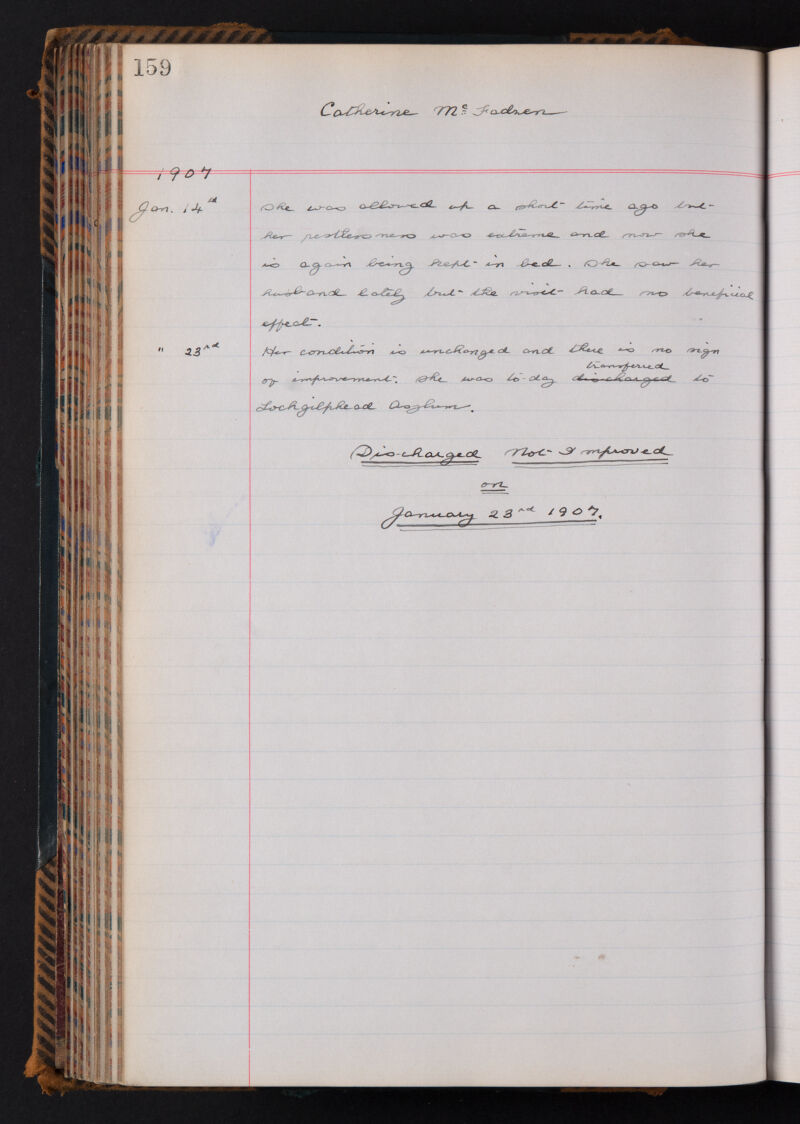 159
Catherine Mc Fadzen
1907
Jan. 14th She was allowed up a short time ago but
her restlessness was extreme and now she
is again being kept in bed. She saw her
husband lately but the visit had no beneficial
effect.
" 23rd Her condition is unchanged and there is no sign
transferred
of improvement. She was to-day discharged to
Lochgilphead Asylum.
Discharged Not Improved
on
January 23rd 1907.